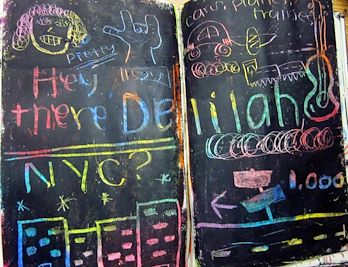 pretty
Hey
there Delilah
NYC?
cars, planes,
trains
1,000